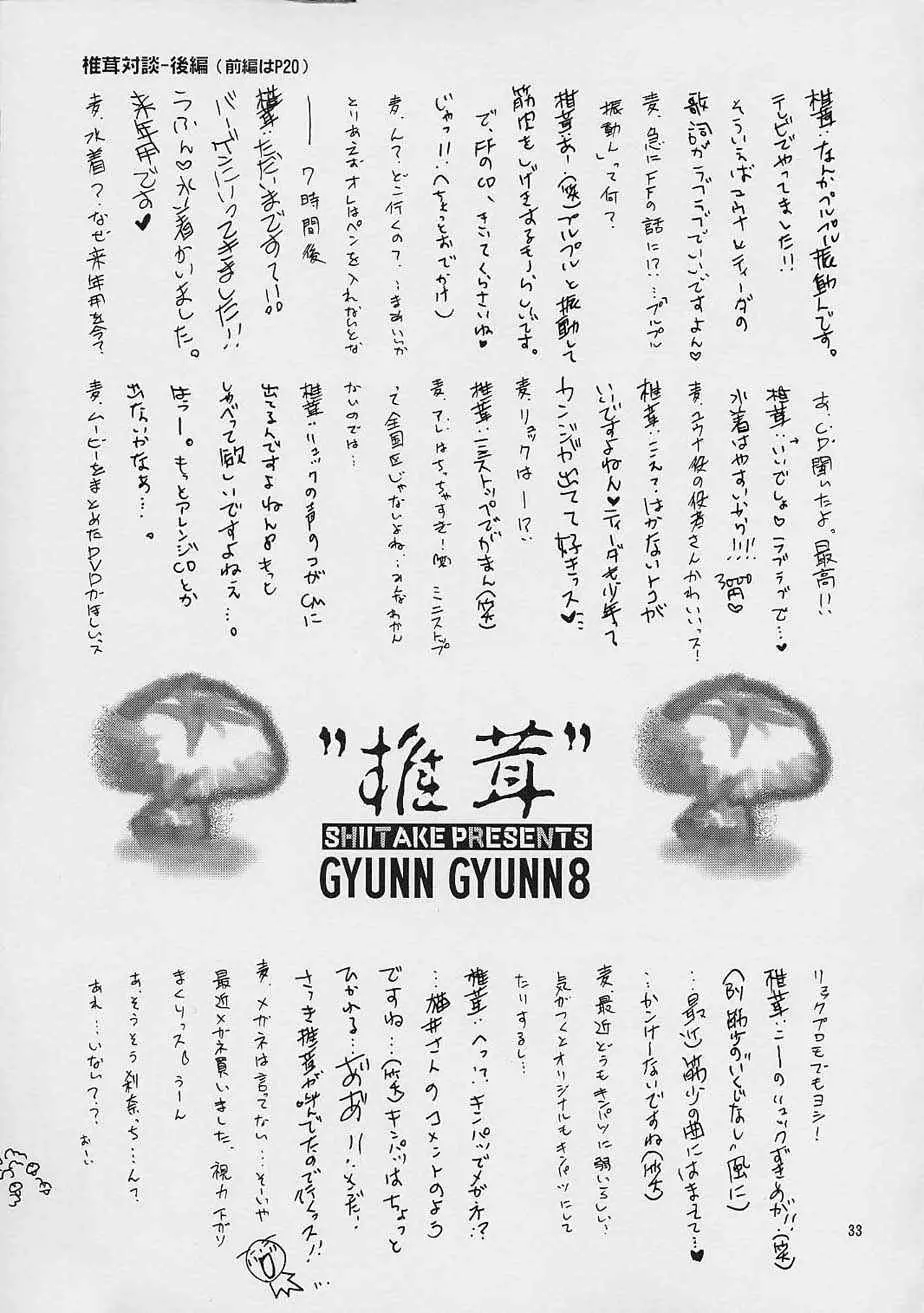 椎茸対談-後編(前編はP20)
椎茸:なんかプルプル振動んです。
テレビでやってました!!
そういえばユウナとティーダの
歌詞がラブラブでいーですよん♡
麦.急にFFの話に!?…プルプル
振動んって何?
椎茸:あー(笑)プルプルと振動して
筋肉をしげきするモノらしいです。
で、FFのCD、きいてくらさいね♥
じゃっ!!(ちょっとおでかけ)
麦.んで、どこ行くの?…まあいいか
とりあえずオレはペンを入れないとな
── 7時間後
椎茸:ただいまですて!!
バーゲンにいってきました!!
うふん♡水着かいました。
来年用です♥
麦.水着?なぜ来年用を今?
あ、CD聞いたよ。最高!!
椎茸:いいでしょ♡ラブラブで…♥
水着はやすいから!!!! 3000円♡
麦.ユウナ役の役者さんかわいいっス!
椎茸:こえ?はかないトコが
いいですよねん♡ティーダも少年って
カンジが出てて好きっス♥
麦.リュックはー!?
椎茸:ミニストップでがまん(笑)
麦.アレはちっちゃすぎ!(笑)ミニストップ
って全国区じゃないよね…みなわかん
ないのでは…
椎茸:リュックの声のコがCMに
出てるんですよねん♪もっと
しゃべって欲しいですよねぇ…。
はうー。もっとアレンジCDとか
出ないかなぁ…。
麦.ムービーをまとめたDVDがほしいっス
"椎茸"
SHIITAKE PRESENTS
GYUNN GYUNN 8
リュックプロモでもヨシ!
椎茸:このリュックずきめが!!(笑)
(筋少の"いくじなし"風に)
…最近筋少の曲にはまえて…♥
…かんけーないですね(笑)
麦.最近どうもキンパツに弱いらしい…
気がつくとオリジナルもキンパツにして
たりするし…
椎茸:へっ!?キンパツでメガネ!?
…猫井さんのコメントのよう
ですね…(笑)キンパツはちょっと
ひかれる…あ゛あ゛!!…〆だ!
さっき椎茸が呼んでたので行くっス!!…
麦.メガネは言ってない…そーいや
最近メガネ買いました、視力下がり
まくりっス うーん
あ、そうそう刹奈っち…ん?
あれ…いない?? おーい
33